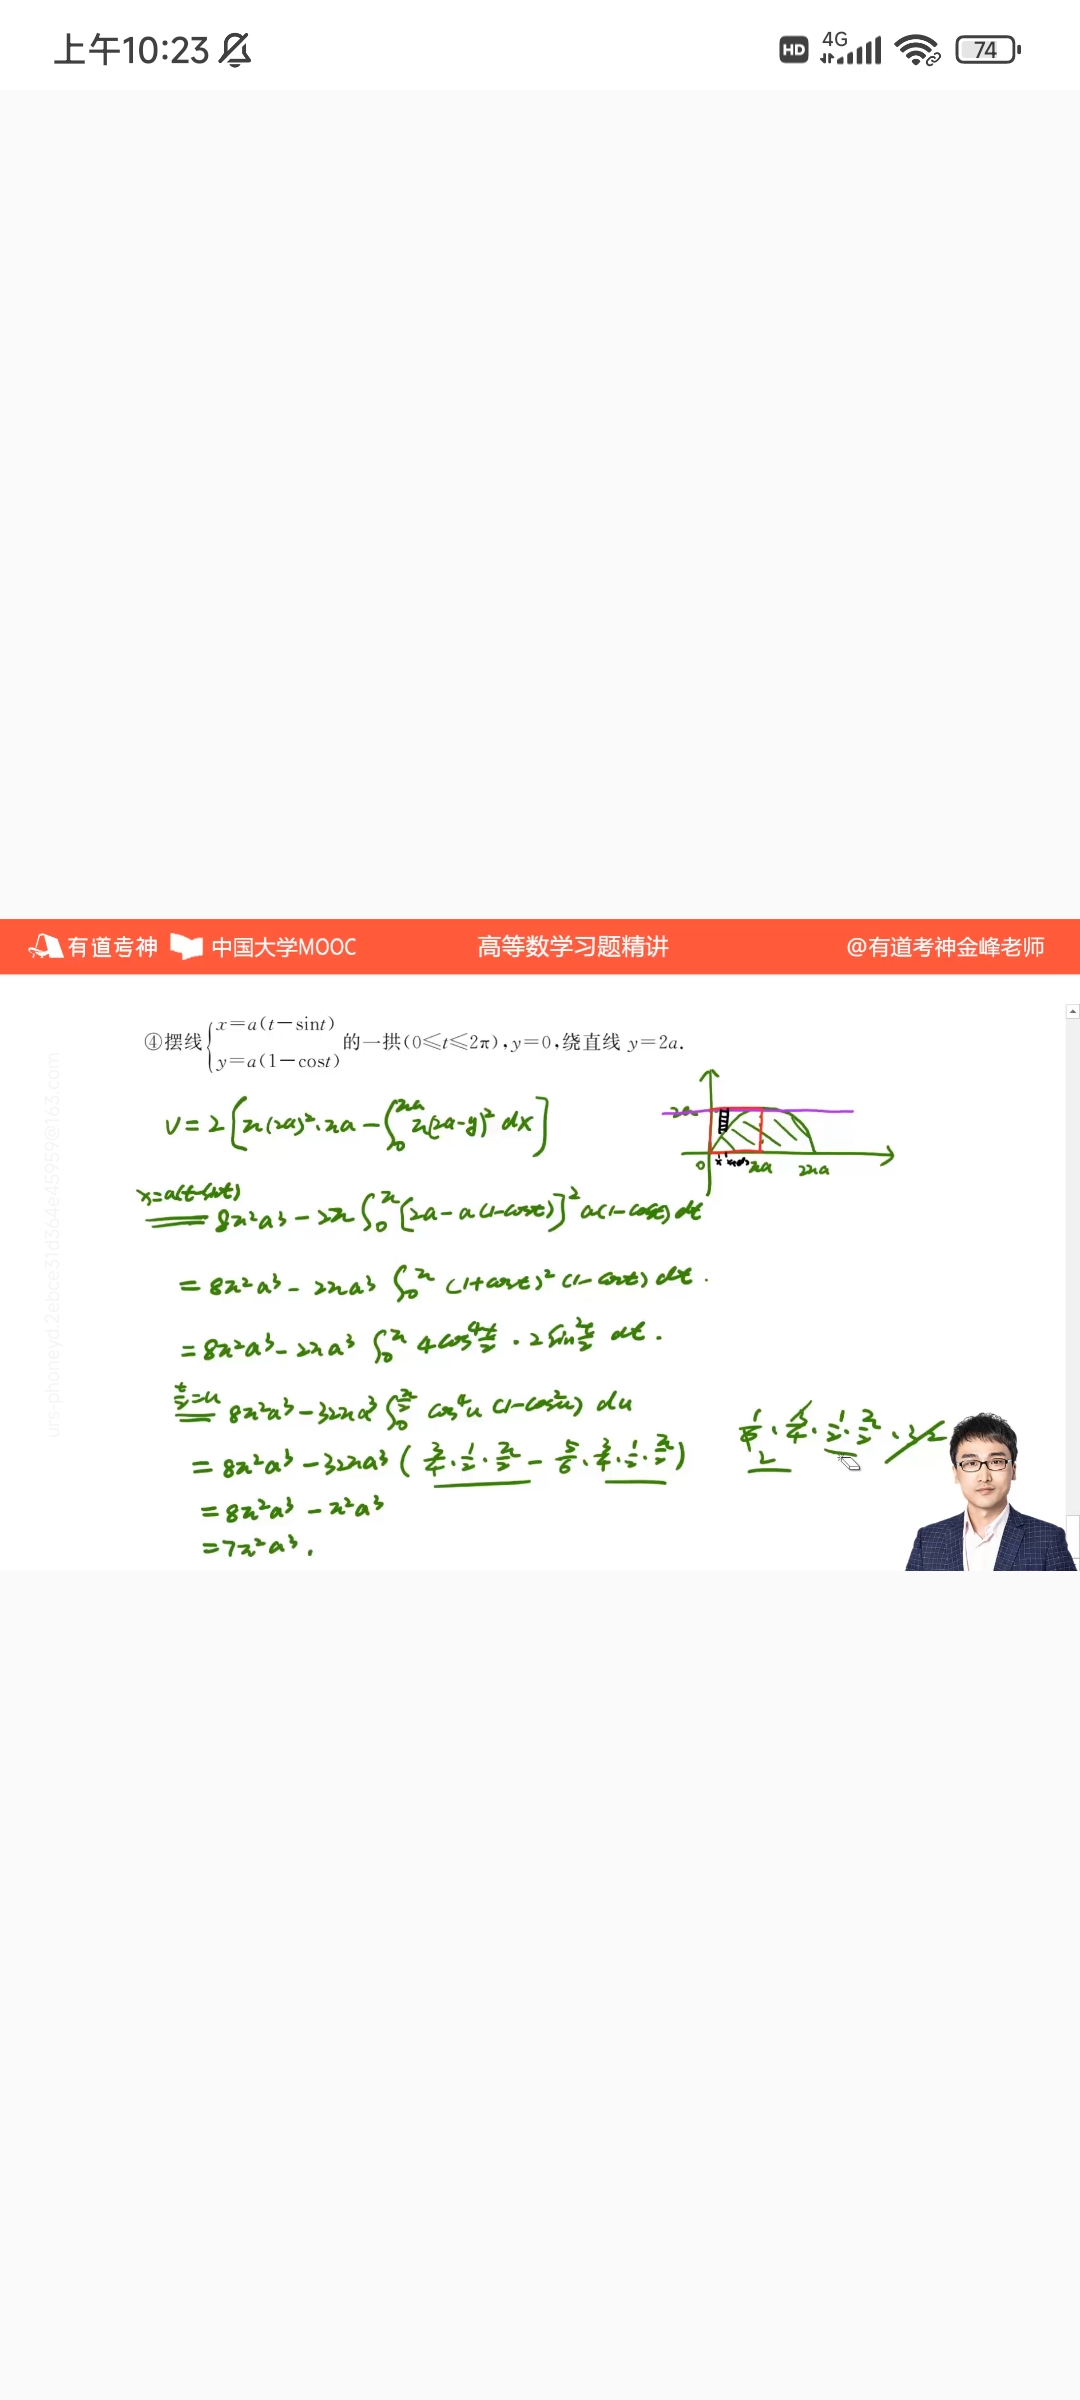 上午10:23 HD 4G 74
有道考神 中国大学MOOC 高等数学习题精讲 @有道考神金峰老师
④摆线{x=a(t-sint) y=a(1-cost) 的一拱(0≤t≤2π),y=0,绕直线 y=2a.
V=2[π(2a)²·πa-∫₀^πa π(2a-y)²dx]
2a
0 x x+dx πa 2πa
x=a(t-sint)
= 8π²a³-2π∫₀^π[2a-a(1-cost)]²a(1-cost)dt
=8π²a³-2πa³∫₀^π(1+cost)²(1-cost)dt.
=8π²a³-2πa³∫₀^π 4cos⁴ t/2·2sin² t/2 dt.
t/2=u
= 8π²a³-32πa³∫₀^π/2 cos⁴u(1-cos²u)du
=8π²a³-32πa³(3/4·1/2·π/2-5/6·3/4·1/2·π/2)
1/6·3/4·1/2·π/2·32
2
=8π²a³-π²a³
=7π²a³.
urs-phoneyd.2ebce31d364e45959@163.com